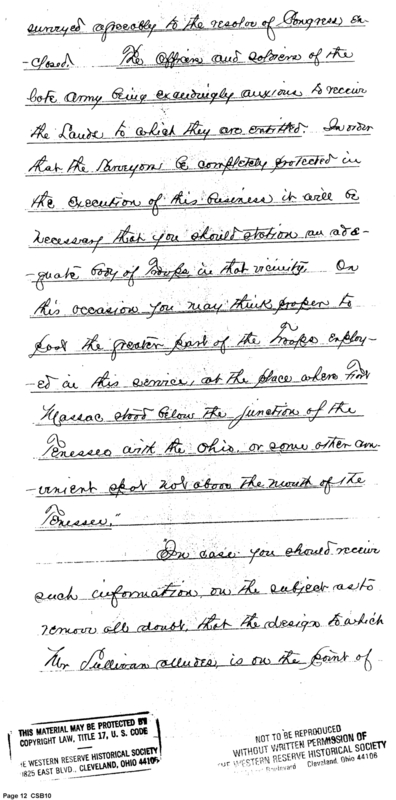 surveyed agreeably to the resolve of Congress en-
-closed. The officers and soldiers of the
late army being exceedingly anxious to receive
the Lands to which they are entitled. In order
that the Surveyors be completely protected in
the execution of this business it will be
necessary that you should station an ade-
-quate body of Troops, in that vicinity. On
this occasion you may think proper to
post the greater part of the Troops employ-
-ed in this service, at the place where Fort
Massac stood below the junction of the
Tenessee with the Ohio, or some other con-
-venient spot not above the mouth of the
Tenessee."
In case you should receive
such information, on the subject as to
remove all doubt, that the design to which
Mr Sullivan alludes, is on the point of
THIS MATERIAL MAY BE PROTECTED BY
COPYRIGHT LAW, TITLE 17, U. S. CODE
WESTERN RESERVE HISTORICAL SOCIETY
1825 EAST BLVD., CLEVELAND, OHIO 44106
NOT TO BE REPRODUCED
WITHOUT WRITTEN PERMISSION OF
WESTERN RESERVE HISTORICAL SOCIETY
Boulevard Cleveland, Ohio 44106
Page 12 CSB10